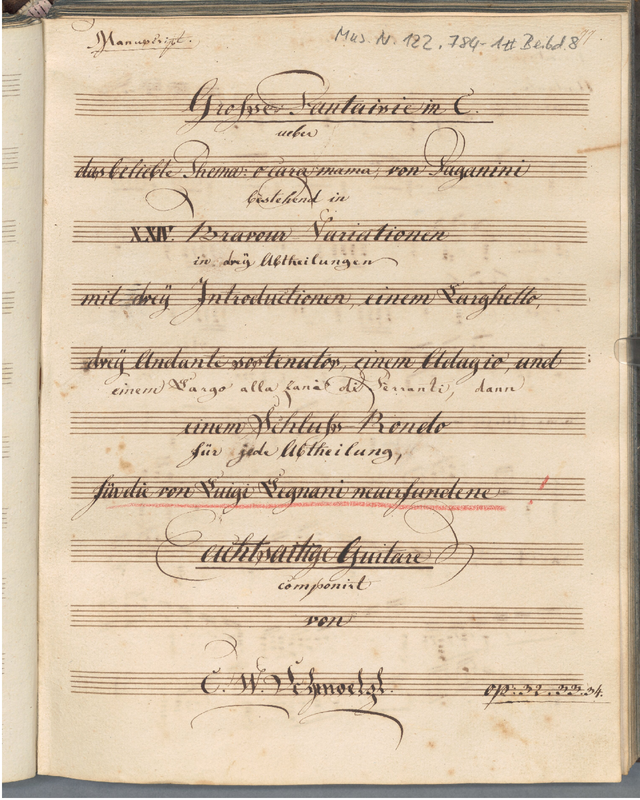 Manuscript.
Mus. N. 122.784-1# Beibd. 8
Große Fantaisie in C.
ueber
das beliebte Thema: o cara mama, von Paganini
bestehend in
XXIV. Bravour Variationen
in dreÿ Abtheilungen
mit dreÿ Introductionen, einem Larghetto,
dreÿ Andante sostenutos, einem Adagio, und
einem Largo alla di Ferranti, dann
einem Schluß-Rondo
für jede Abtheilung,
für die von Luigi Legnani neuerfundene !
achtsaitige Guitare
componirt
von
C. W. Schmoelzl.
op: 32. 33. 34.